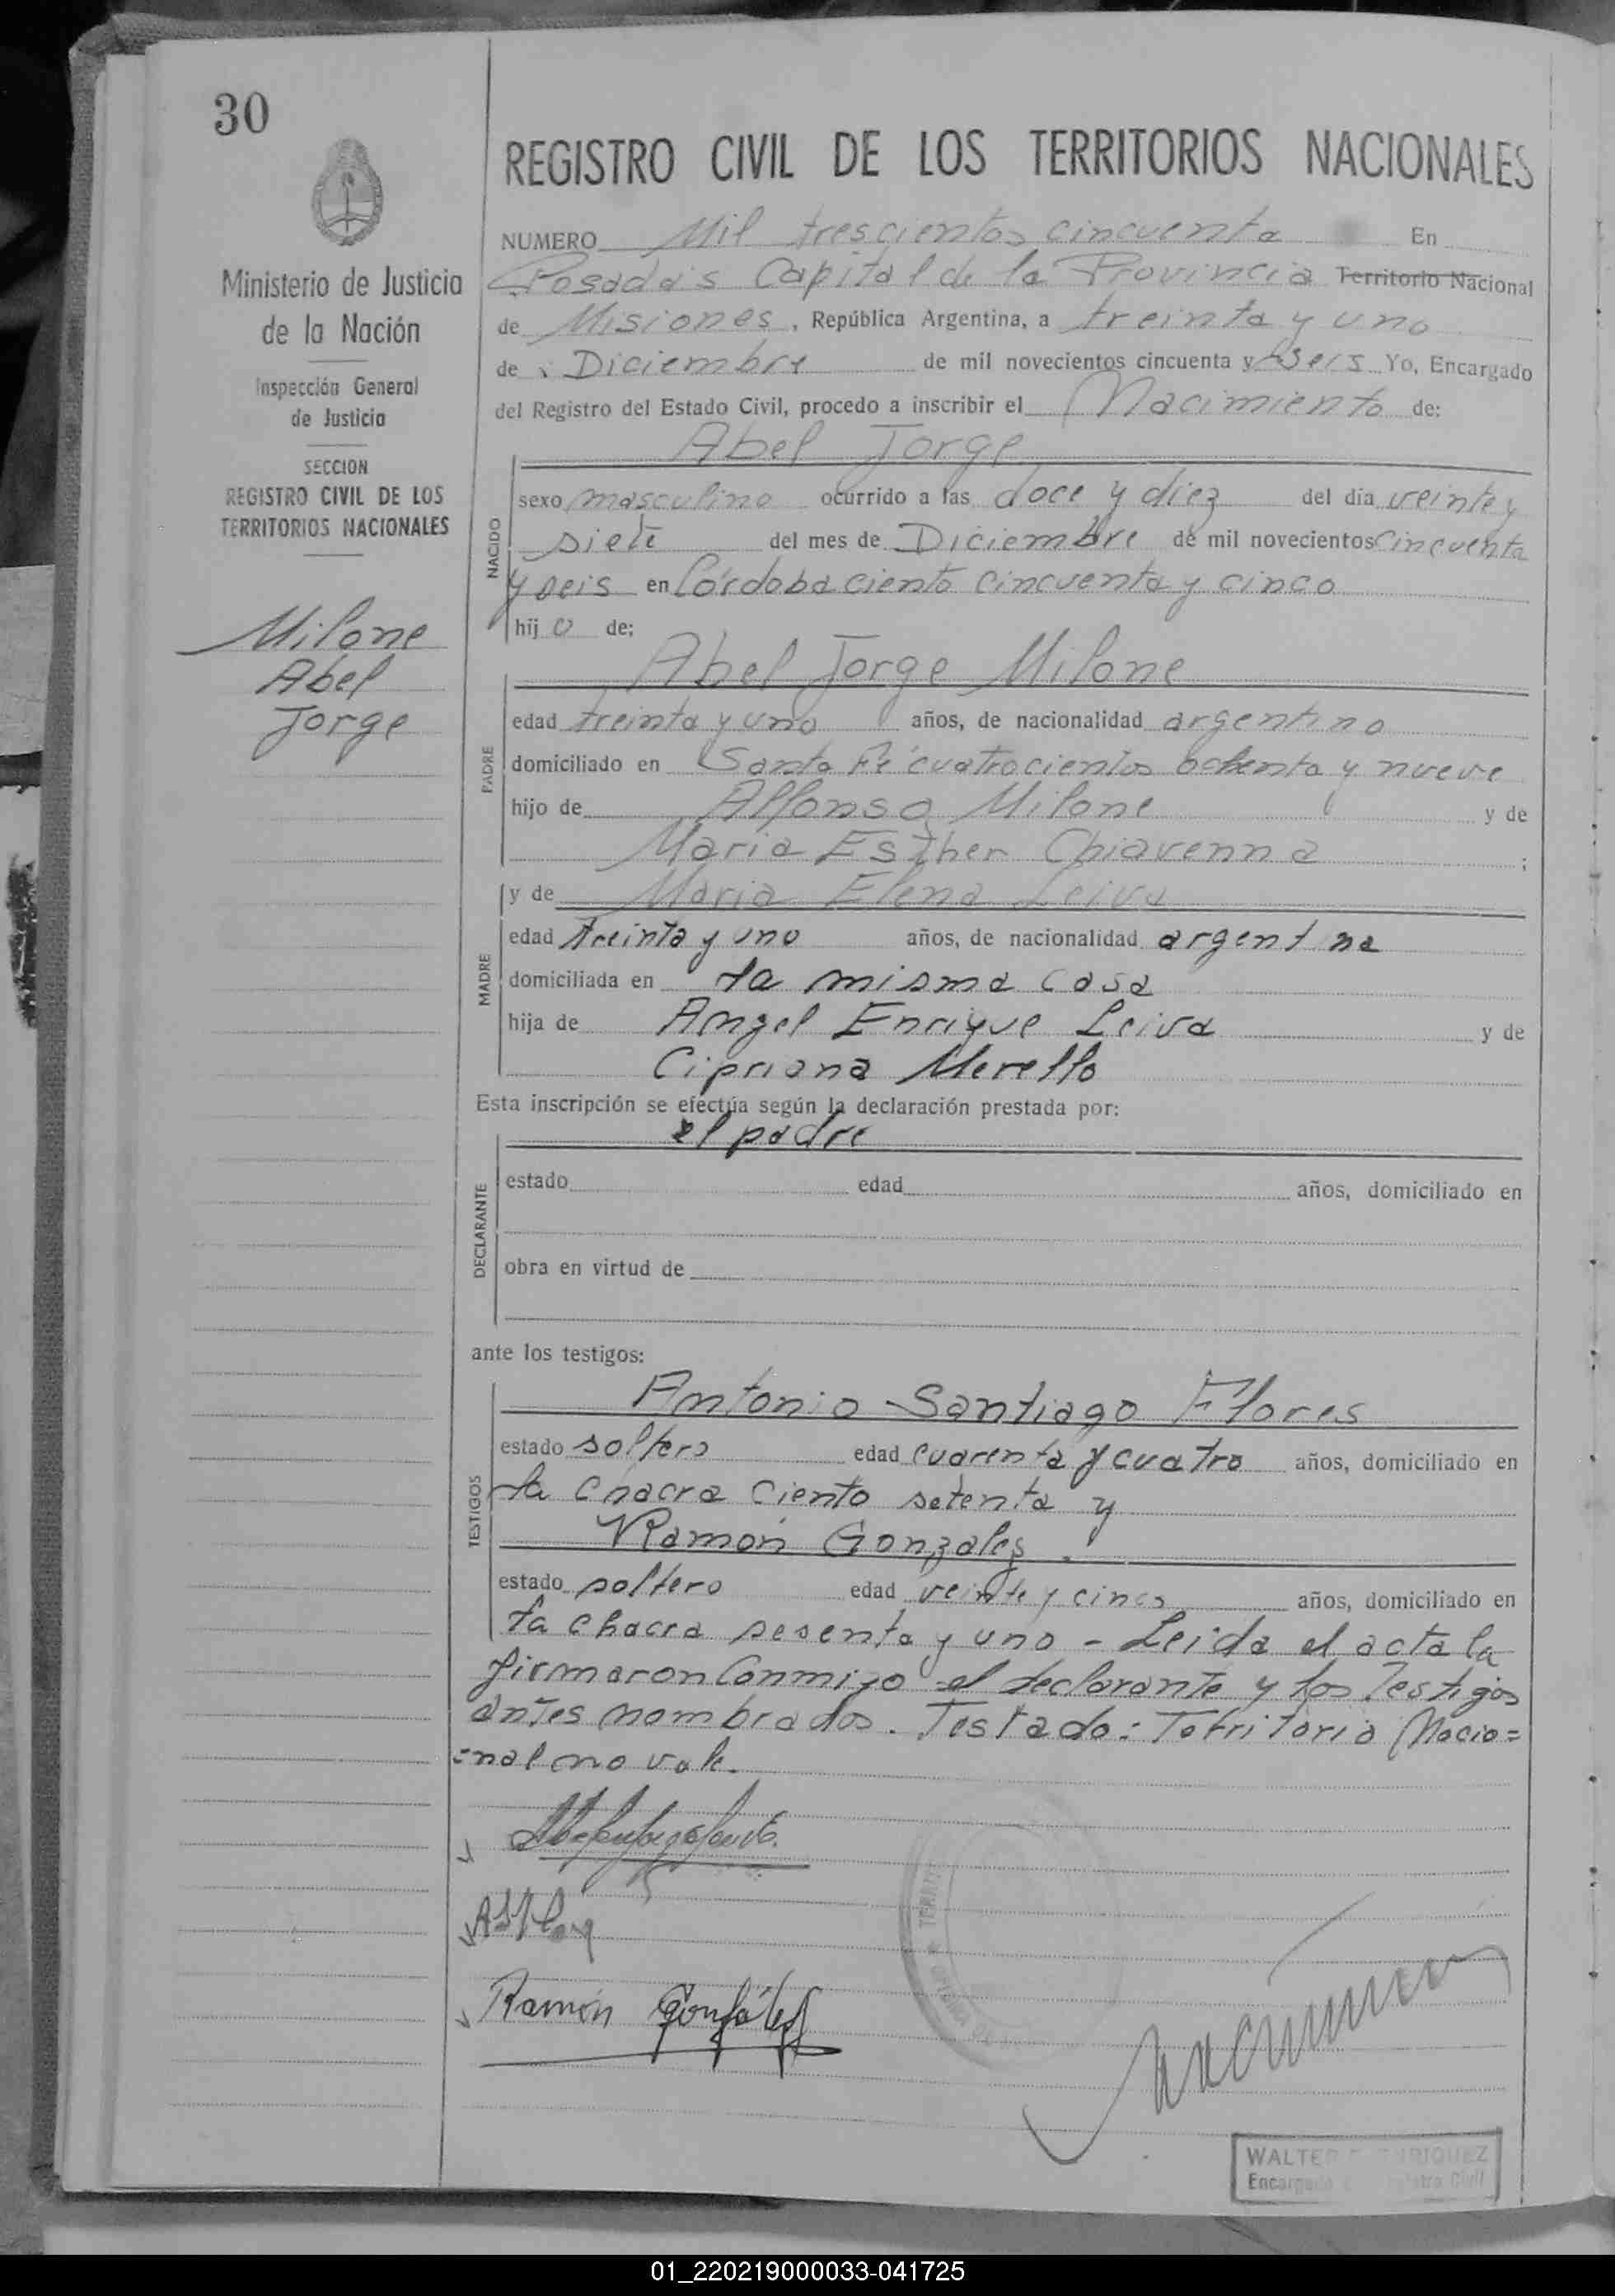 30
REGISTRO CIVIL DE LOS TERRITORIOS NACIONALES
Ministerio de Justicia
de la Nación
Inspección General
de Justicia
SECCION
REGISTRO CIVIL DE LOS
TERRITORIOS NACIONALES
Milone
Abel
Jorge
NUMERO Mil trescientos cincuenta En
Posadas Capital de la Provincia Territorio Nacional
de Misiones, República Argentina, a treinta y uno
de Diciembre de mil novecientos cincuenta y seis Yo, Encargado
del Registro del Estado Civil, procedo a inscribir el Nacimiento de:
Abel Jorge
NACIDO
sexo masculino ocurrido a las doce y diez del día veinte y
siete del mes de Diciembre de mil novecientos cincuenta
y seis en Córdoba ciento cincuenta y cinco
hijo de:
Abel Jorge Milone
PADRE
edad treinta y uno años, de nacionalidad argentino
domiciliado en Santa Fé cuatrocientos ochenta y nueve
hijo de Alfonso Milone y de
Maria Esther Chiavenna ;
y de Maria Elena Leiva
MADRE
edad treinta y uno años, de nacionalidad argentina
domiciliada en la misma casa
hija de Angel Enrique Leiva y de
Cipriana Merello
Esta inscripción se efectúa según la declaración prestada por:
el padre
DECLARANTE
estado edad años, domiciliado en
obra en virtud de
ante los testigos:
Antonio Santiago Flores
TESTIGOS
estado soltero edad cuarenta y cuatro años, domiciliado en
la chacra ciento setenta y
Ramón Gonzales.
estado soltero edad veinte y cinco años, domiciliado en
la chacra sesenta y uno - Leida el acta la
firmaron conmigo el declarante y los testigos
antes nombrados. Testado: Territorio Nacio=
=nal no vale.
Ramón González
WALTER
Encargado Registro Civil
01_220219000033-041725